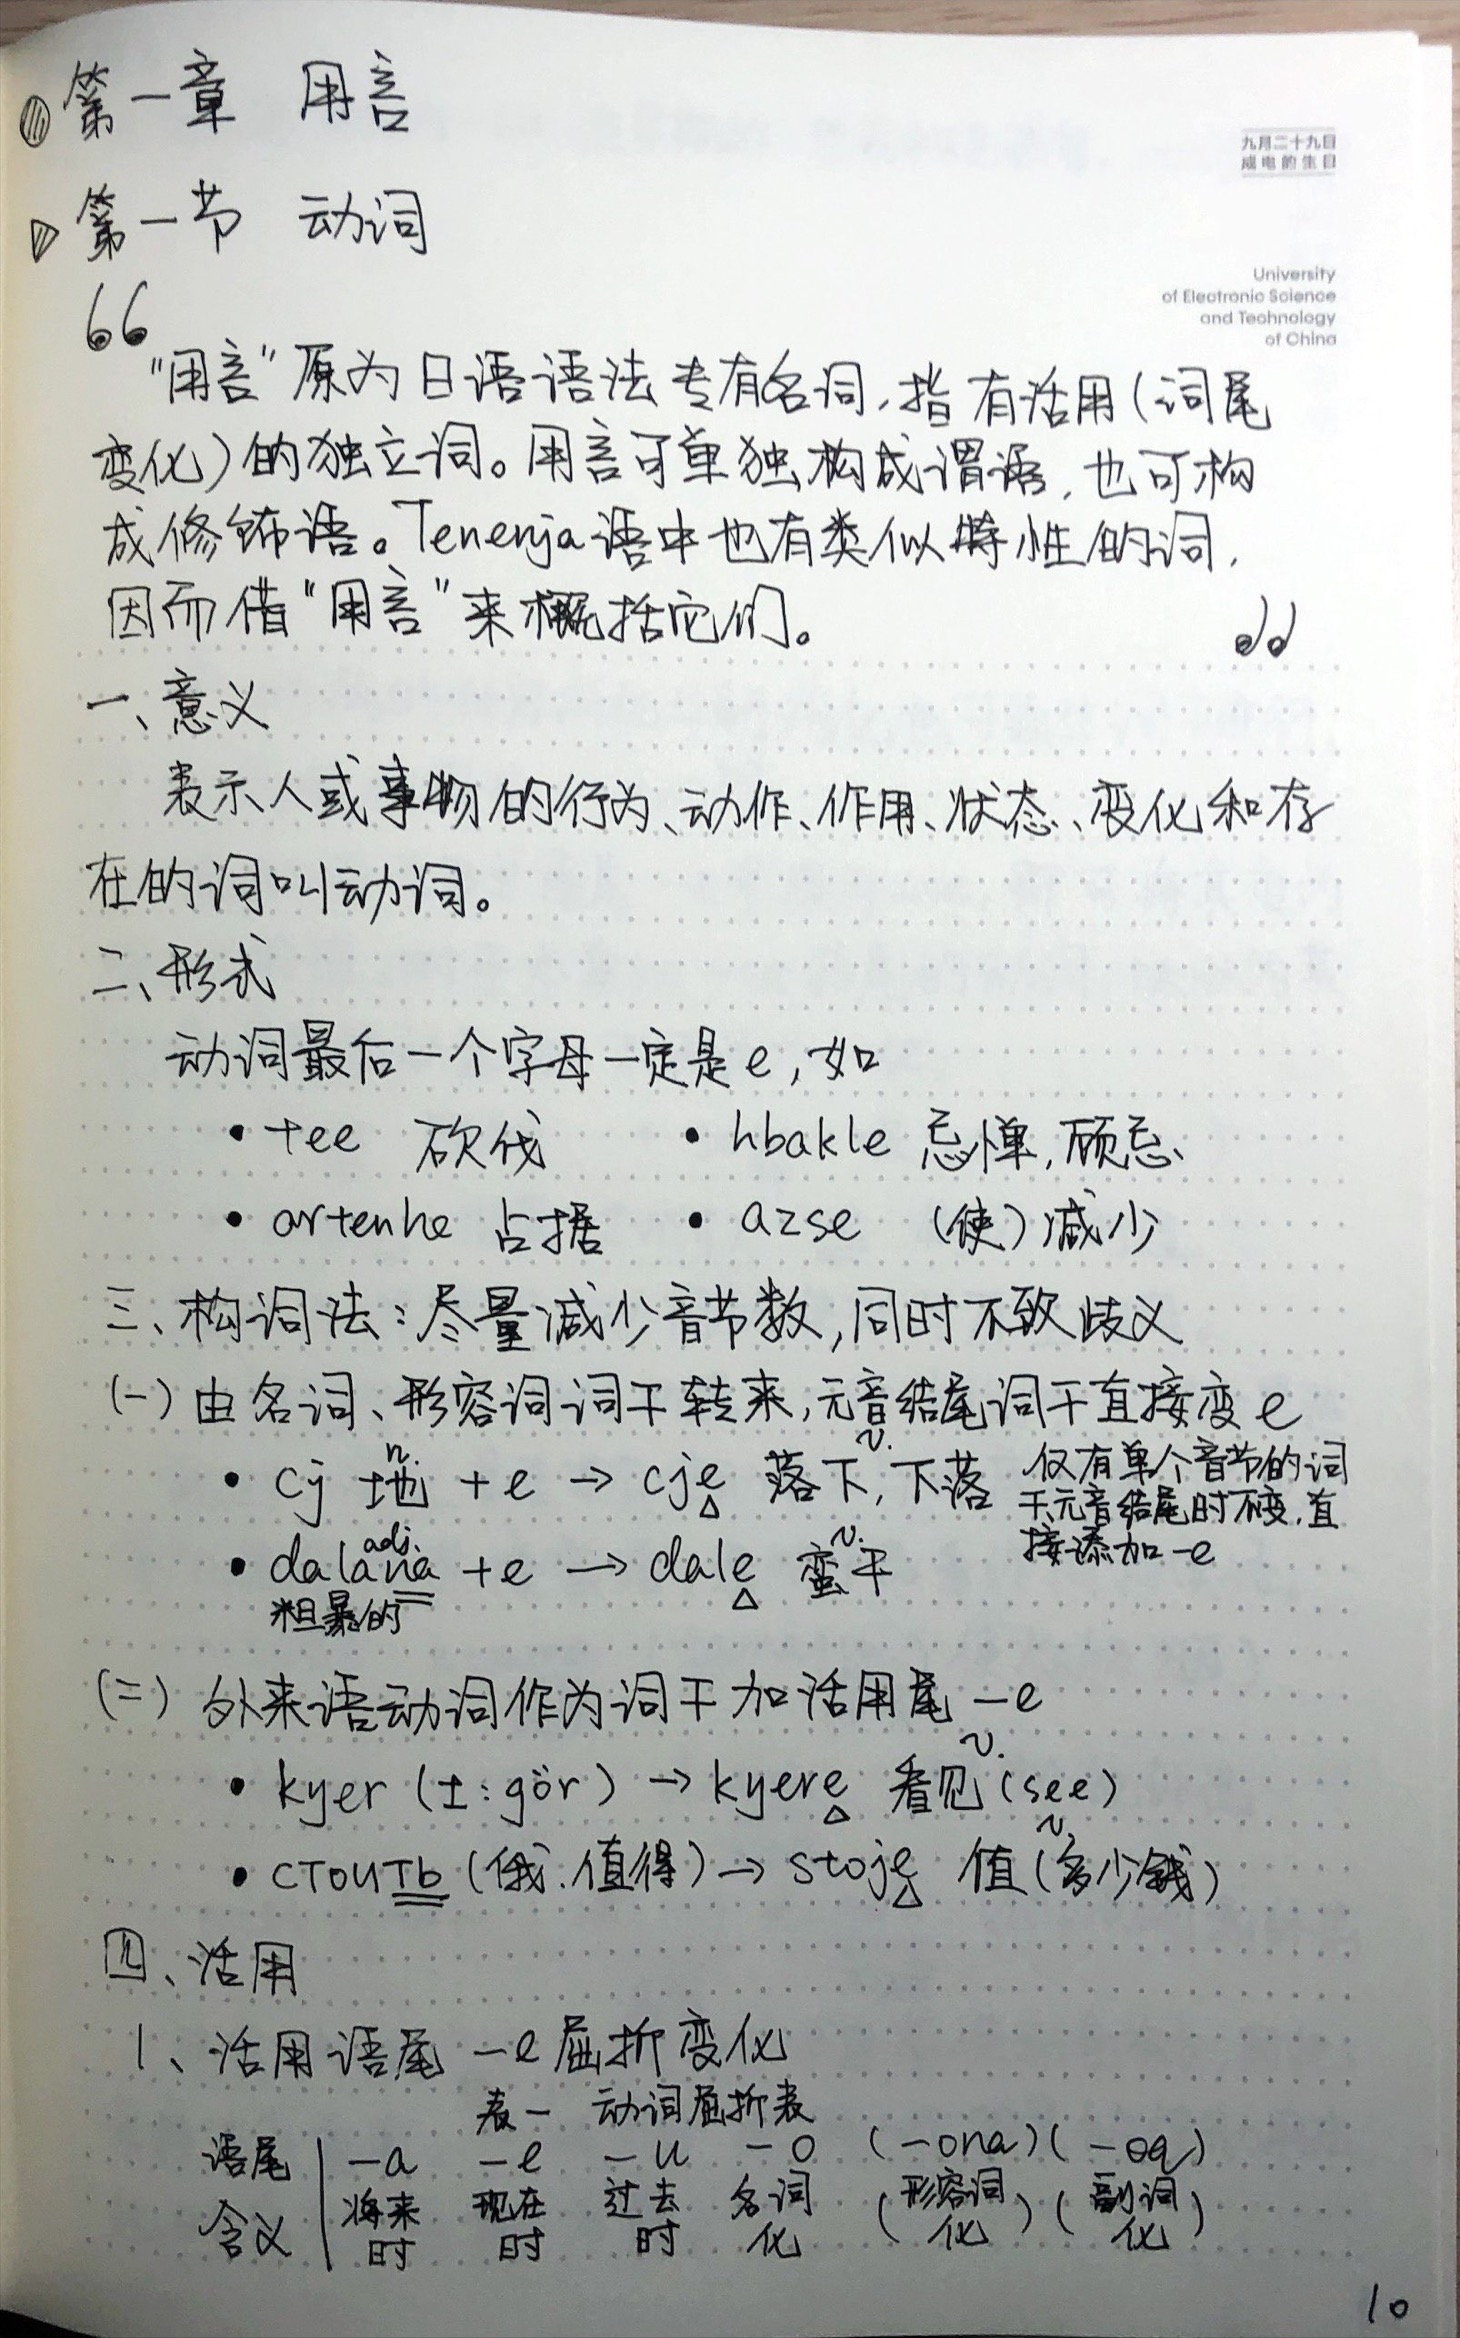 第一章 用言
九月二十九日
成电的生日
第一节 动词
University
of Electronic Science
and Technology
of China
"用言"原为日语语法专有名词,指有活用(词尾
变化)的独立词。用言可单独构成谓语,也可构
成修饰语。Tenenja语中也有类似特性的词,
因而借"用言"来概括它们。
一、意义
表示人或事物的行为、动作、作用、状态、变化和存
在的词叫动词。
二、形式
动词最后一个字母一定是e,如
• tee 砍伐 • hbakle 忌惮,顾忌
• artenhe 占据 • azse (使)减少
三、构词法:尽量减少音节数,同时不致歧义
(一)由名词、形容词词干转来,元音结尾词干直接变e
n. v.
• cj 地 + e → cje 落下,下落 仅有单个音节的词
干元音结尾时不变,直
接添加-e
adj. v.
• dalana + e → dale 蛮干
粗暴的
(二)外来语动词作为词干加活用尾 -e
v.
• kyer (土:gör) → kyere 看见(see)
v.
• стоить (俄.值得) → stoje 值(多少钱)
四、活用
1、活用语尾 -e屈折变化
表一 动词屈折表
语尾 -a -e -u -o (-ona) (-oq)
含义 将来时 现在时 过去时 名词化 (形容词化) (副词化)
10